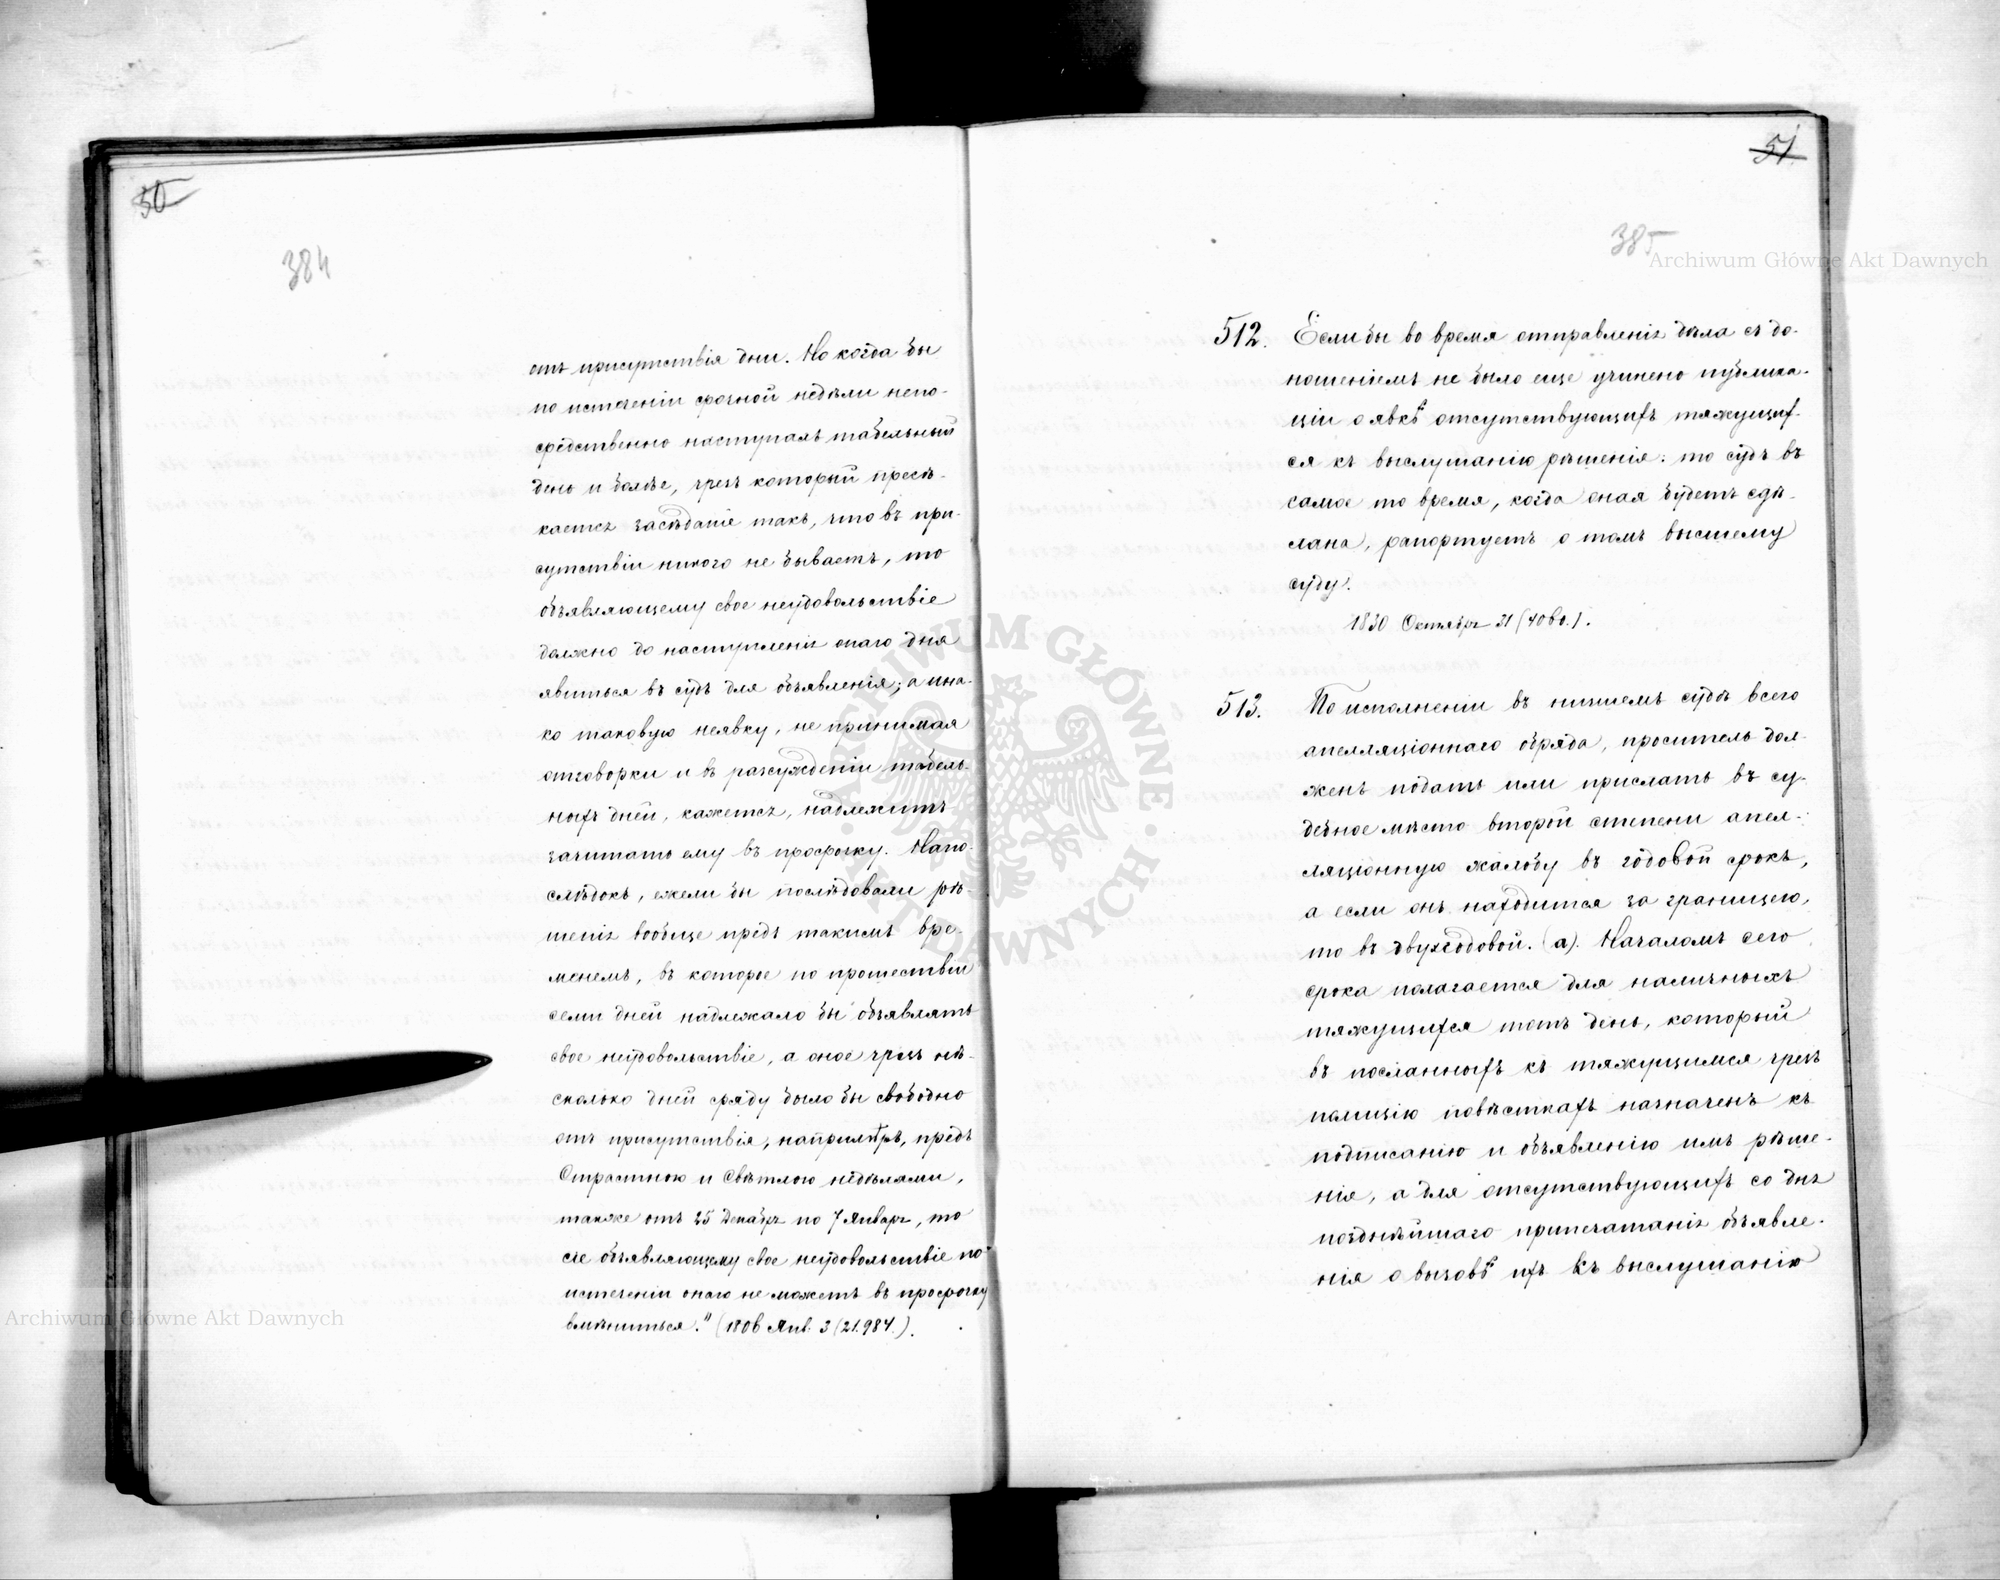 50
384
отъ присутствія дни. Но когда бы
по истеченіи срочной недѣли непо-
средственно наступалъ табельный
день и болѣе, чрезъ который пресѣ-
кается засѣданіе такъ, что въ при-
сутствіи никого не бываетъ, то
объявляющему свое неудовольствіе
должно до наступленія онаго дня
явиться въ судъ для объявленія; а ина-
ко таковую неявку, не принимая
отговорки и въ разсужденіи табель-
ныхъ дней, кажется, надлежитъ
зачитать ему въ просрочку. Напо-
слѣдокъ, ежели бы послѣдовали рѣ-
шенія вообще предъ такимъ вре-
менемъ, въ которое по прошествіи
семи дней надлежало бы объявлять
свое неудовольствіе, а оное чрезъ нѣ-
сколько дней сряду было бы свободно
отъ присутствія, напримѣръ, предъ
Страстною и Свѣтлою недѣлями,
также отъ 25 Декабря по 7 Января, то
сіе объявляющему свое неудовольствіе по
истеченіи онаго не можетъ въ просрочку
вмѣниться." (1806 Янв. 3 (21.984.).
51
385
512. Если бы во время отправленія дѣла съ до-
ношеніемъ не было еще учинено публика-
ціи о явкѣ отсутствующихъ тяжущих-
ся къ выслушанію рѣшенія: то судъ въ
самое то время, когда оная будетъ сдѣ-
лана, рапортуетъ о томъ высшему
суду.
1830 Октября 31 (40 во.).
513. По исполненіи въ низшемъ судѣ всего
апелляціоннаго обряда, проситель дол-
женъ подать или прислать въ су-
дебное мѣсто второй степени апел-
ляціонную жалобу въ годовой срокъ,
а если онъ находится за границею,
то въ двухгодовой. (а). Началомъ сего
срока полагается для наличныхъ
тяжущихся тотъ день, который
въ посланныхъ къ тяжущимся чрезъ
полицію повѣсткахъ назначенъ къ
подписанію и объявленію имъ рѣше-
нія, а для отсутствующихъ со дня
позднѣйшаго припечатанія объявле-
нія о вызовѣ ихъ къ выслушанію
Archiwum Główne Akt Dawnych
Archiwum Główne Akt Dawnych
ARCHIWUM GŁÓWNE AKT DAWNYCH